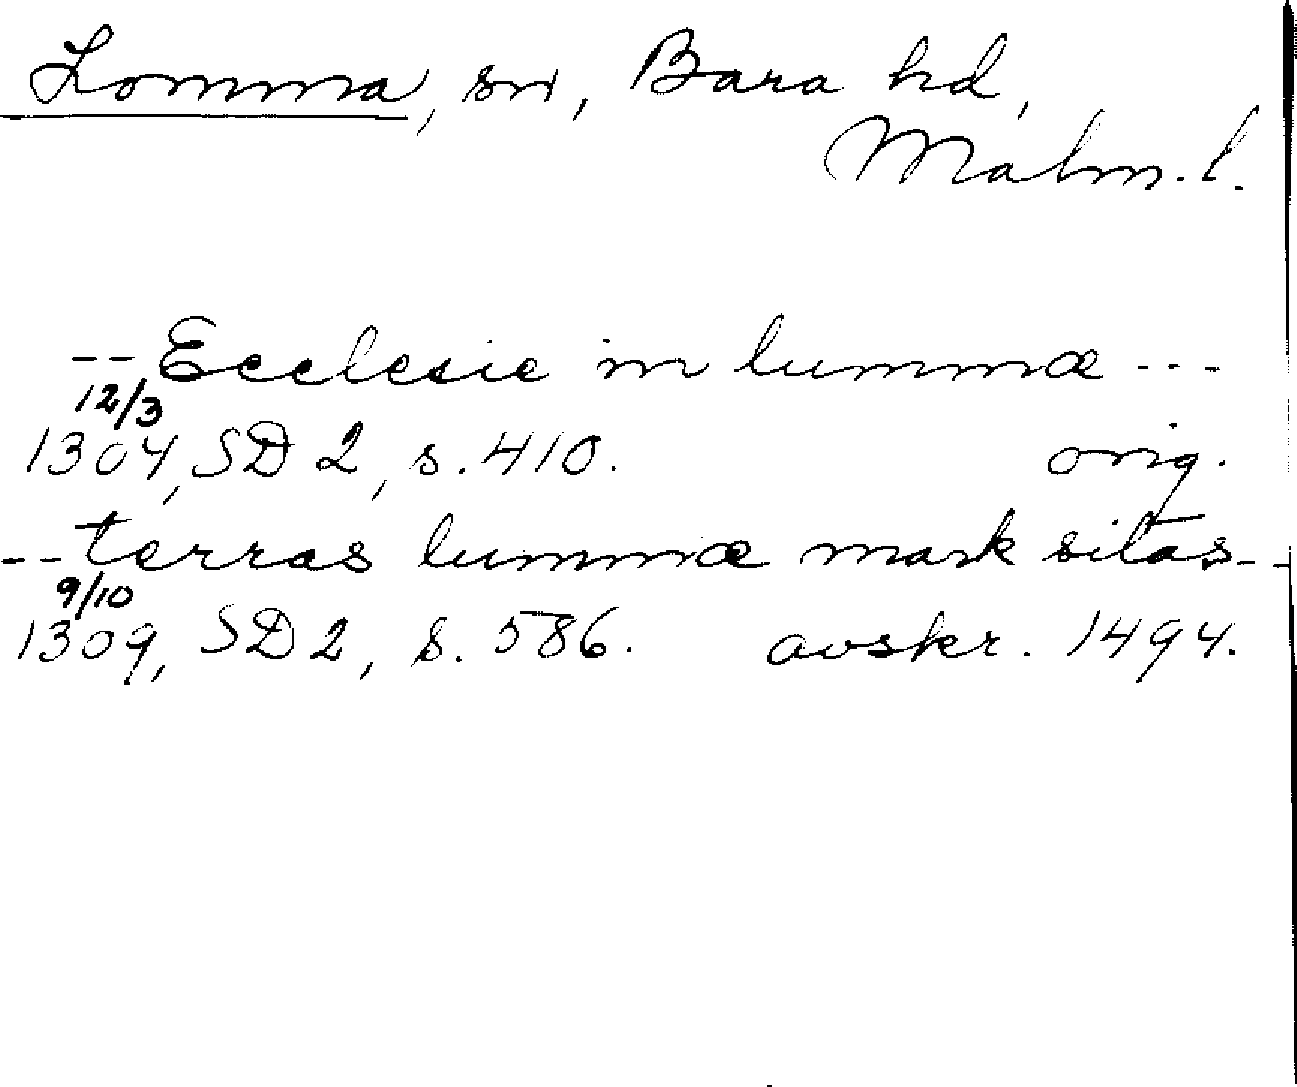 Lomma, sn, Bara hd,
Malm. l.
-- Ecclesie in lummæ ---
12/3
1304, SD 2, s. 410. orig.
-- terras lummæ mark sitas --
9/10
1309, SD 2, s. 586. avskr. 1494.